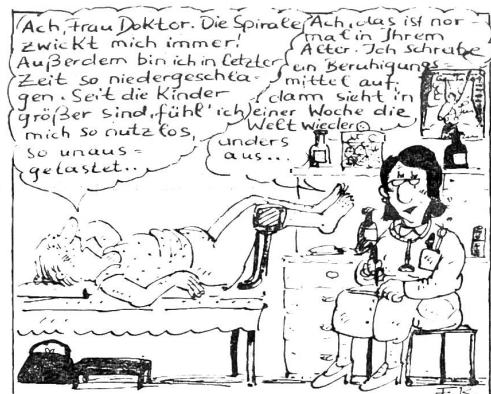 Ach, Frau Doktor. Die Spirale
zwickt mich immer!
Außerdem bin ich in letzter
Zeit so niedergeschla-
gen. Seit die Kinder
größer sind, fühl' ich
mich so nutzlos,
so unaus=
gelastet..
Ach, das ist nor-
mal in Ihrem
Alter. Ich schreibe
ein Beruhigungs
mittel auf,
dann sieht in
einer Woche die
Welt wieder
anders
aus...